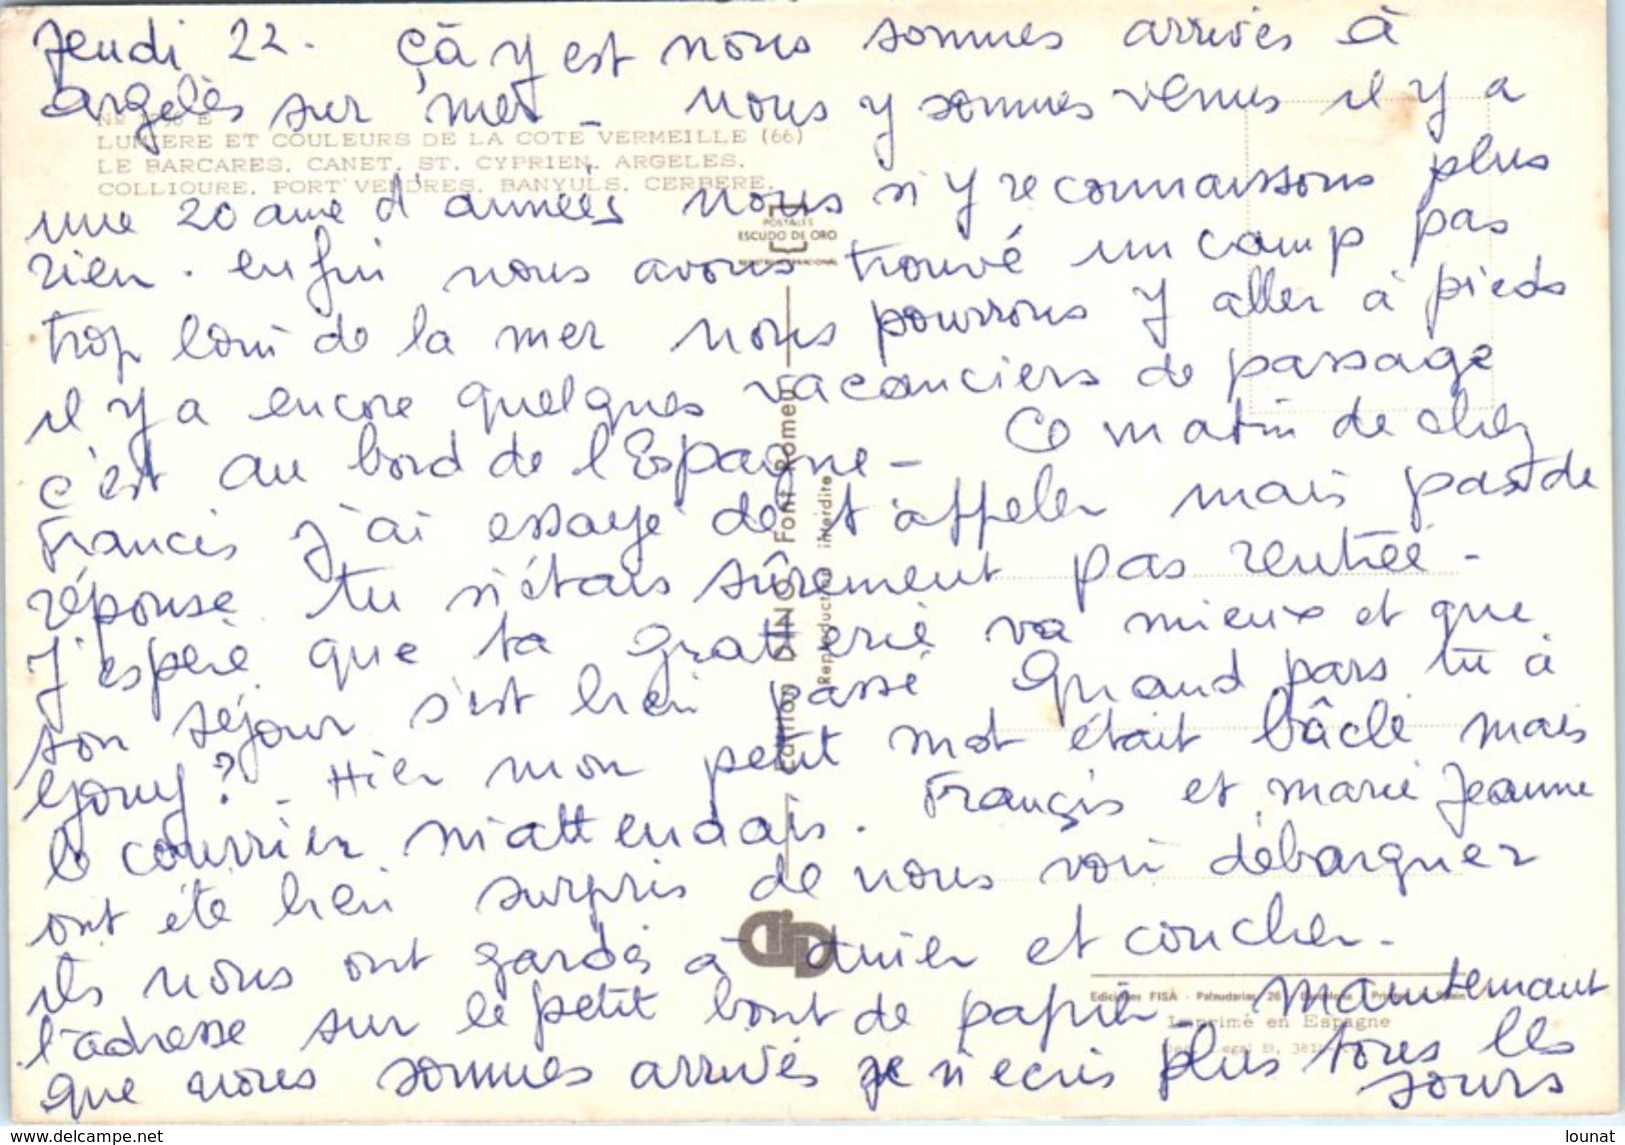 Jeudi 22. çà y est nous sommes arrivés à
argelès sur mer - nous y sommes venus il y a
LUMIERE ET COULEURS DE LA COTE VERMEILLE (66)
LE BARCARES. CANET. ST. CYPRIEN. ARGELES.
COLLIOURE. PORT VENDRES. BANYULS. CERBERE.
une 20aine d'années nous n'y reconnaissons plus
POSTALES
ESCUDO DE ORO
rien. enfin nous avons trouvé un camp pas
trop loin de la mer nous pourrons y aller à pieds
il y a encore quelques vacanciers de passage
c'est au bord de l'Espagne - Ce matin de chez
Francis j'ai essayé de t'appeler mais pas de
réponse tu n'étais sûrement pas rentrée -
J'espère que ta gratterie va mieux et que
ton séjour s'est bien passé Quand pars tu à
Gouy? - Hier mon petit mot était bâclé mais
le courrier m'attendais. Françis et marie Jeanne
ont été bien surpris de nous voir débarquer
ils nous ont gardés à dinier et coucher.
l'adresse sur le petit bout de papier - Maintenant
que nous sommes arrivés je n'écris plus tous les
jours
Edition DINO Font-Romeu
Reproduction interdite
Imprimé en Espagne
www.delcampe.net
lounat